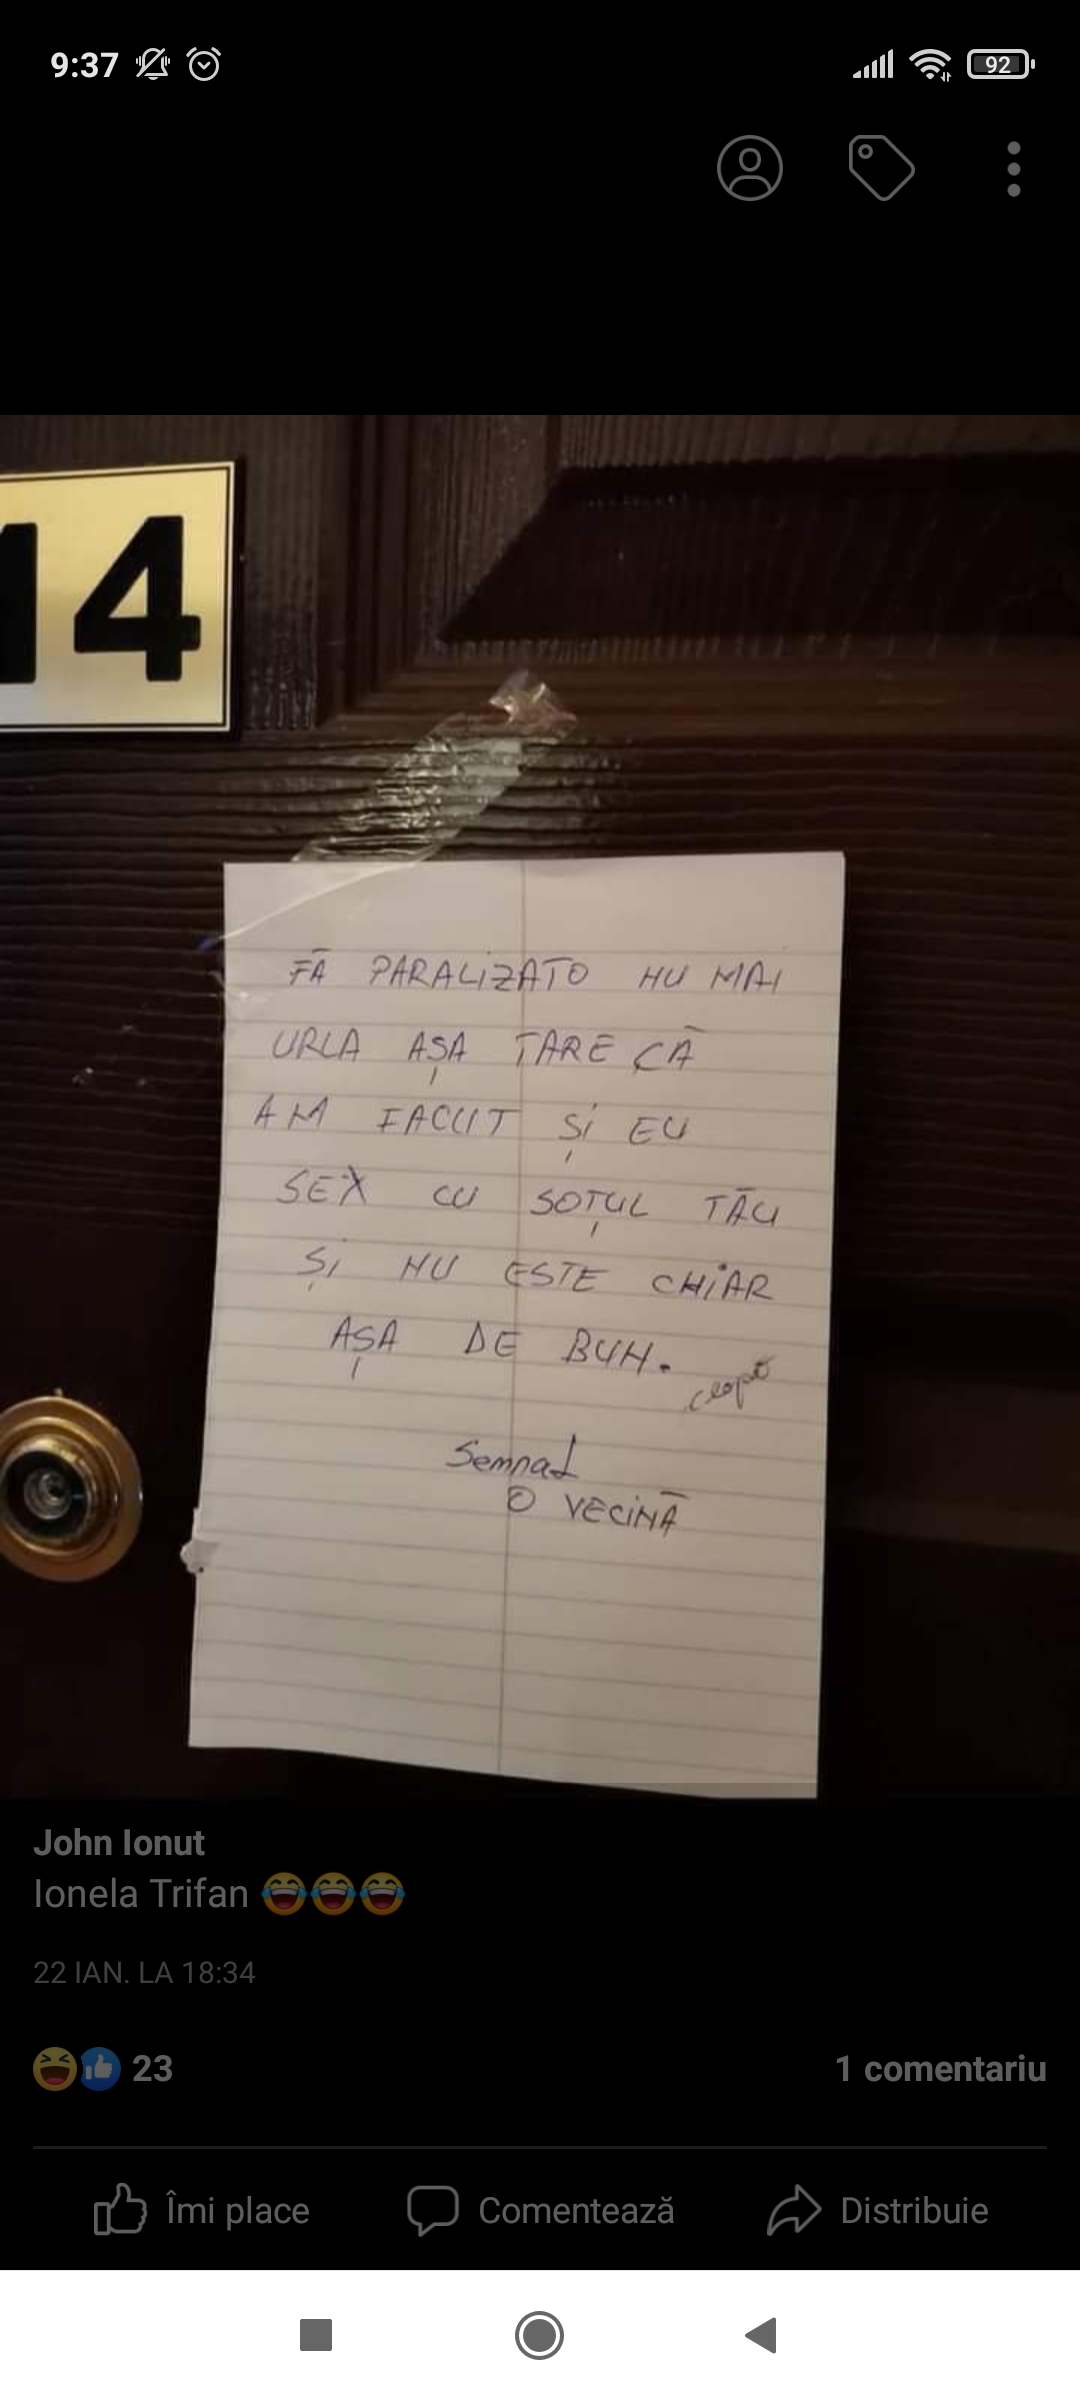 9:37
92
14
FĂ PARALIZATO NU MAI
URLA AȘA TARE CĂ
AM FACUT ȘI EU
SEX CU SOȚUL TĂU
ȘI NU ESTE CHIAR
AȘA DE BUN.
Semnat
O VECINĂ
John Ionut
Ionela Trifan 😂😂😂
22 IAN. LA 18:34
23
1 comentariu
Îmi place
Comentează
Distribuie